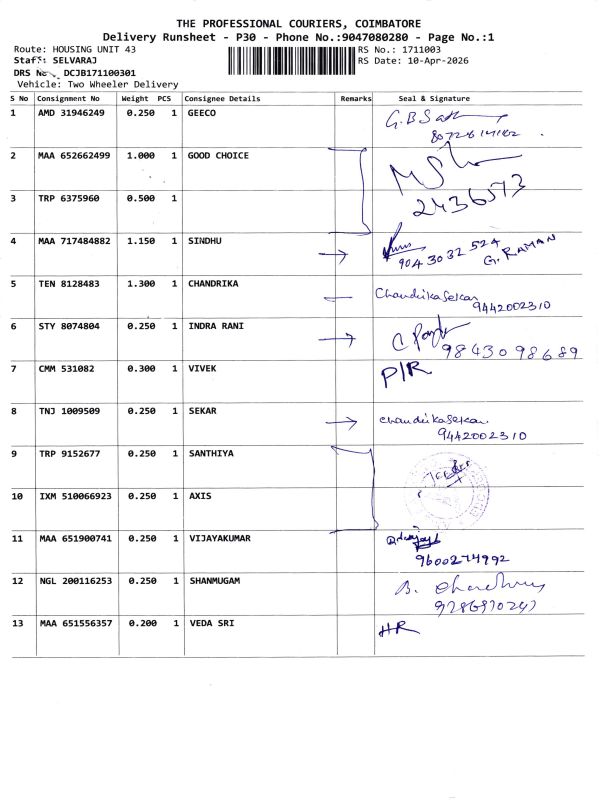 THE PROFESSIONAL COURIERS, COIMBATORE
Delivery Runsheet - P30 - Phone No.:9047080280 - Page No.:1
Route: HOUSING UNIT 43
RS No.: 1711003
Staff: SELVARAJ
RS Date: 10-Apr-2026
DRS No. DCJB171100301
Vehicle: Two Wheeler Delivery
S No Consignment No Weight PCS Consignee Details Remarks Seal & Signature
1 AMD 31946249 0.250 1 GEECO
2 MAA 652662499 1.000 1 GOOD CHOICE
2436573
3 TRP 6375960 0.500 1
4 MAA 717484882 1.150 1 SINDHU
9043032524
G. RAMAN
5 TEN 8128483 1.300 1 CHANDRIKA Chandrika Sekar
9442002310
6 STY 8074804 0.250 1 INDRA RANI
9843098689
7 CMM 531082 0.300 1 VIVEK P/R
8 TNJ 1009509 0.250 1 SEKAR Chandrika Sekar
9442002310
9 TRP 9152677 0.250 1 SANTHIYA
10 IXM 510066923 0.250 1 AXIS
11 MAA 651900741 0.250 1 VIJAYAKUMAR
9600274992
12 NGL 200116253 0.250 1 SHANMUGAM B.
13 MAA 651556357 0.200 1 VEDA SRI HR